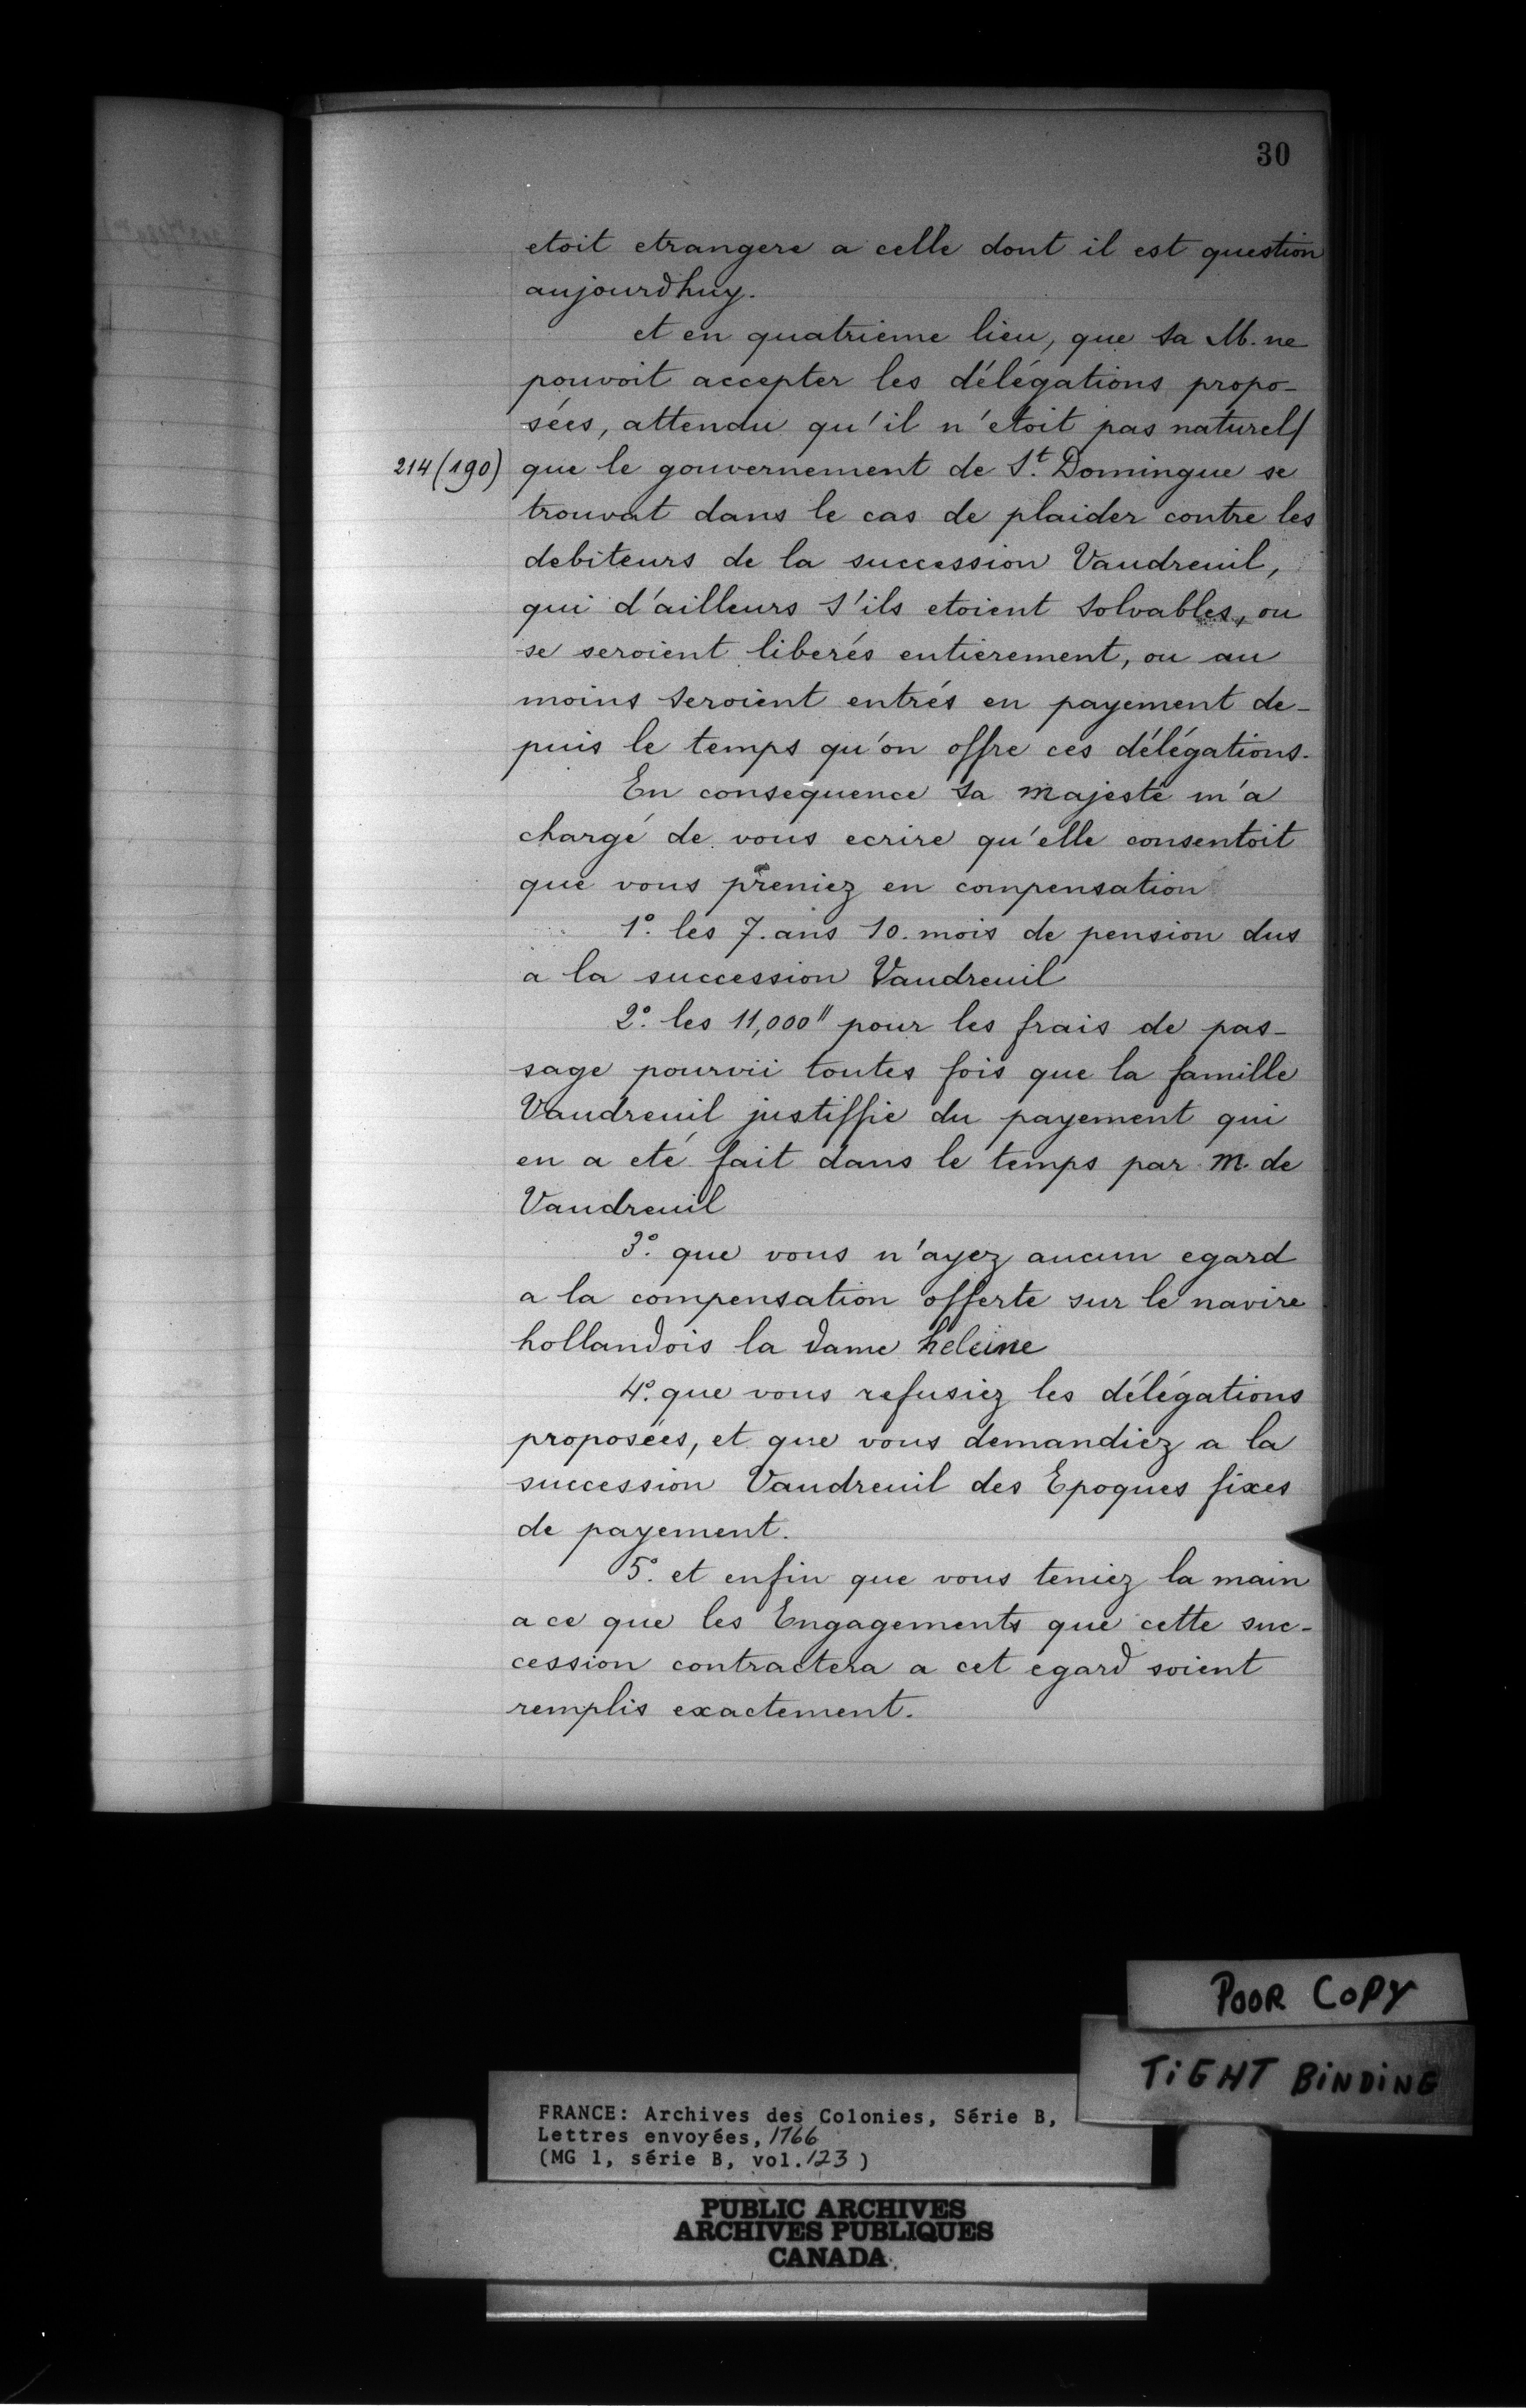 30
etoit etrangere a celle dont il est question
aujourdhuy.
et en quatrieme lieu, que sa M. ne
pouvoit accepter les délégations propo-
sées, attendu qu'il n'etoit pas naturel/
214 (190) que le gouvernement de St. Domingue se
trouvat dans le cas de plaider contre les
debiteurs de la succession Vaudreuil,
qui d'ailleurs s'ils etoient solvables, ou
se seroient liberés entierement, ou au
moins seroient entrés en payement de-
puis le temps qu'on offre ces délégations.
En consequence sa majesté m'a
chargé de vous ecrire qu'elle consentoit
que vous preniez en compensation
1º. les 7. ans 10. mois de pension dus
a la succession Vaudreuil
2º. les 11,000" pour les frais de pas-
sage pourvû toutes fois que la famille
Vaudreuil justiffie du payement qui
en a eté fait dans le temps par M. de
Vaudreuil
3º. que vous n'ayez aucun egard
a la compensation offerte sur le navire
hollandois la dame heleine
4º. que vous refusiez les délégations
proposées, et que vous demandiez a la
succession Vaudreuil des Epoques fixes
de payement.
5º. et enfin que vous teniez la main
a ce que les Engagements que cette suc-
cession contractera a cet egard soient
remplis exactement.
POOR COPY
TIGHT BINDING
FRANCE: Archives des Colonies, Série B,
Lettres envoyées, 1766
(MG 1, série B, vol. 123 )
PUBLIC ARCHIVES
ARCHIVES PUBLIQUES
CANADA